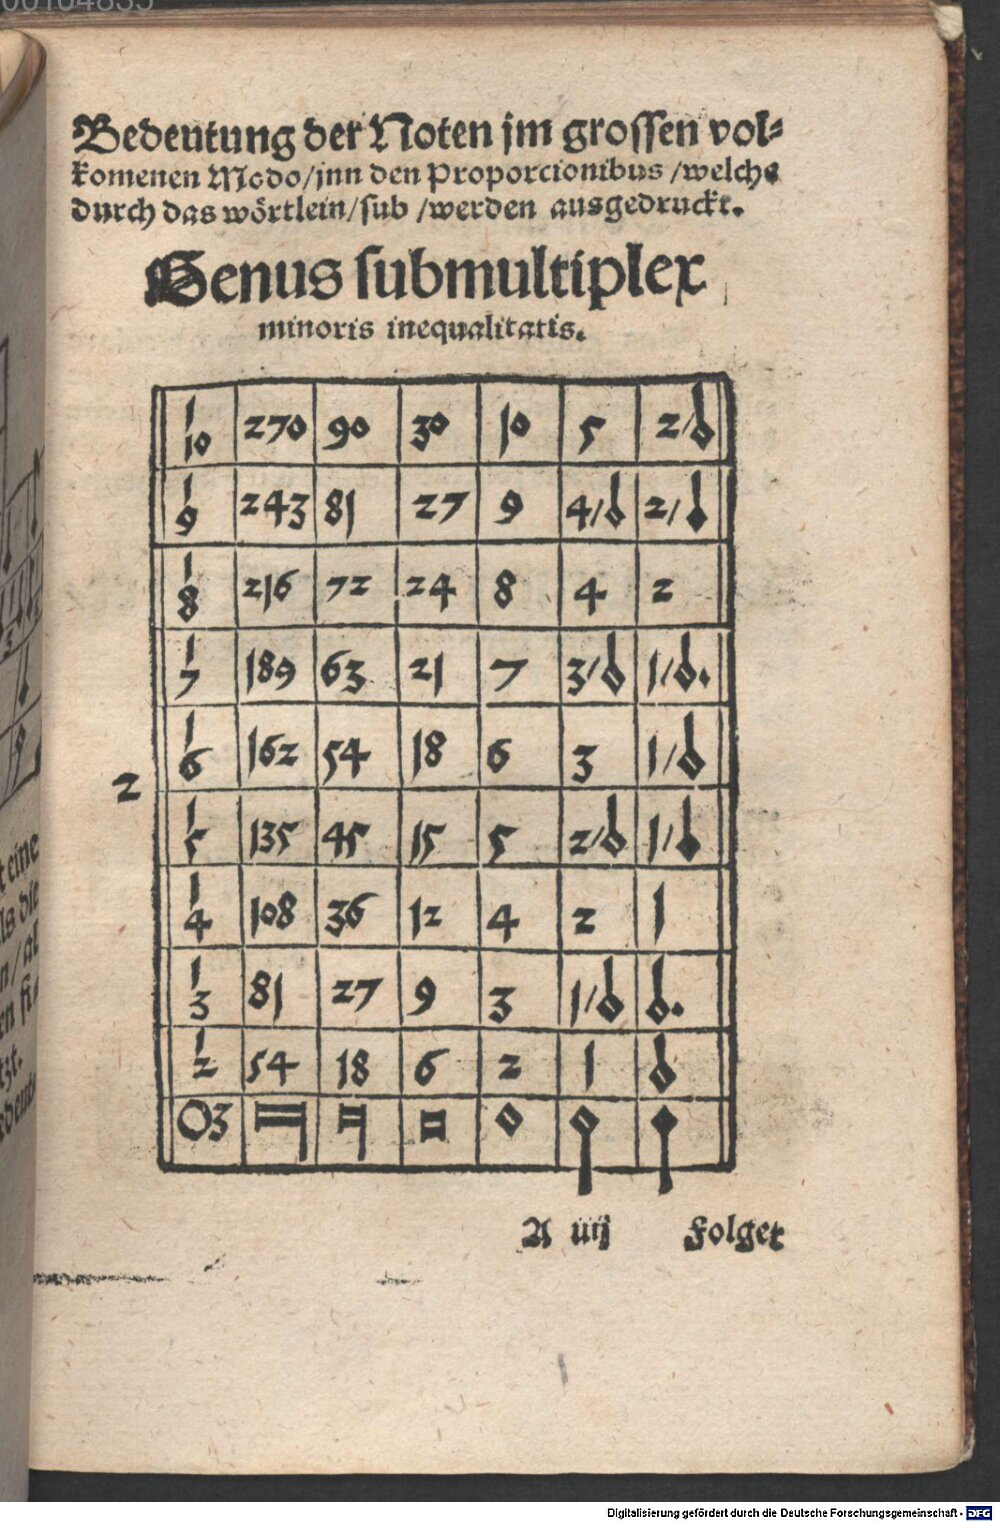 00104835
Bedeutung der Noten jm grossen vol⸗
komenen Modo/jnn den Proporcionibus /welche
durch das wörtlein/sub /werden ausgedruckt.
Genus submultiplex
minoris inequalitatis.
1/10 270 90 30 10 5 2/
1/9 243 81 27 9 4/ 2/
1/8 216 72 24 8 4 2
1/7 189 63 21 7 3/ 1/
1/6 162 54 18 6 3 1/
2
1/5 135 45 15 5 2/ 1/
1/4 108 36 12 4 2 1
1/3 81 27 9 3 1/
1/2 54 18 6 2 1
O3
A iiij Folget
Digitalisierung gefördert durch die Deutsche Forschungsgemeinschaft - DFG